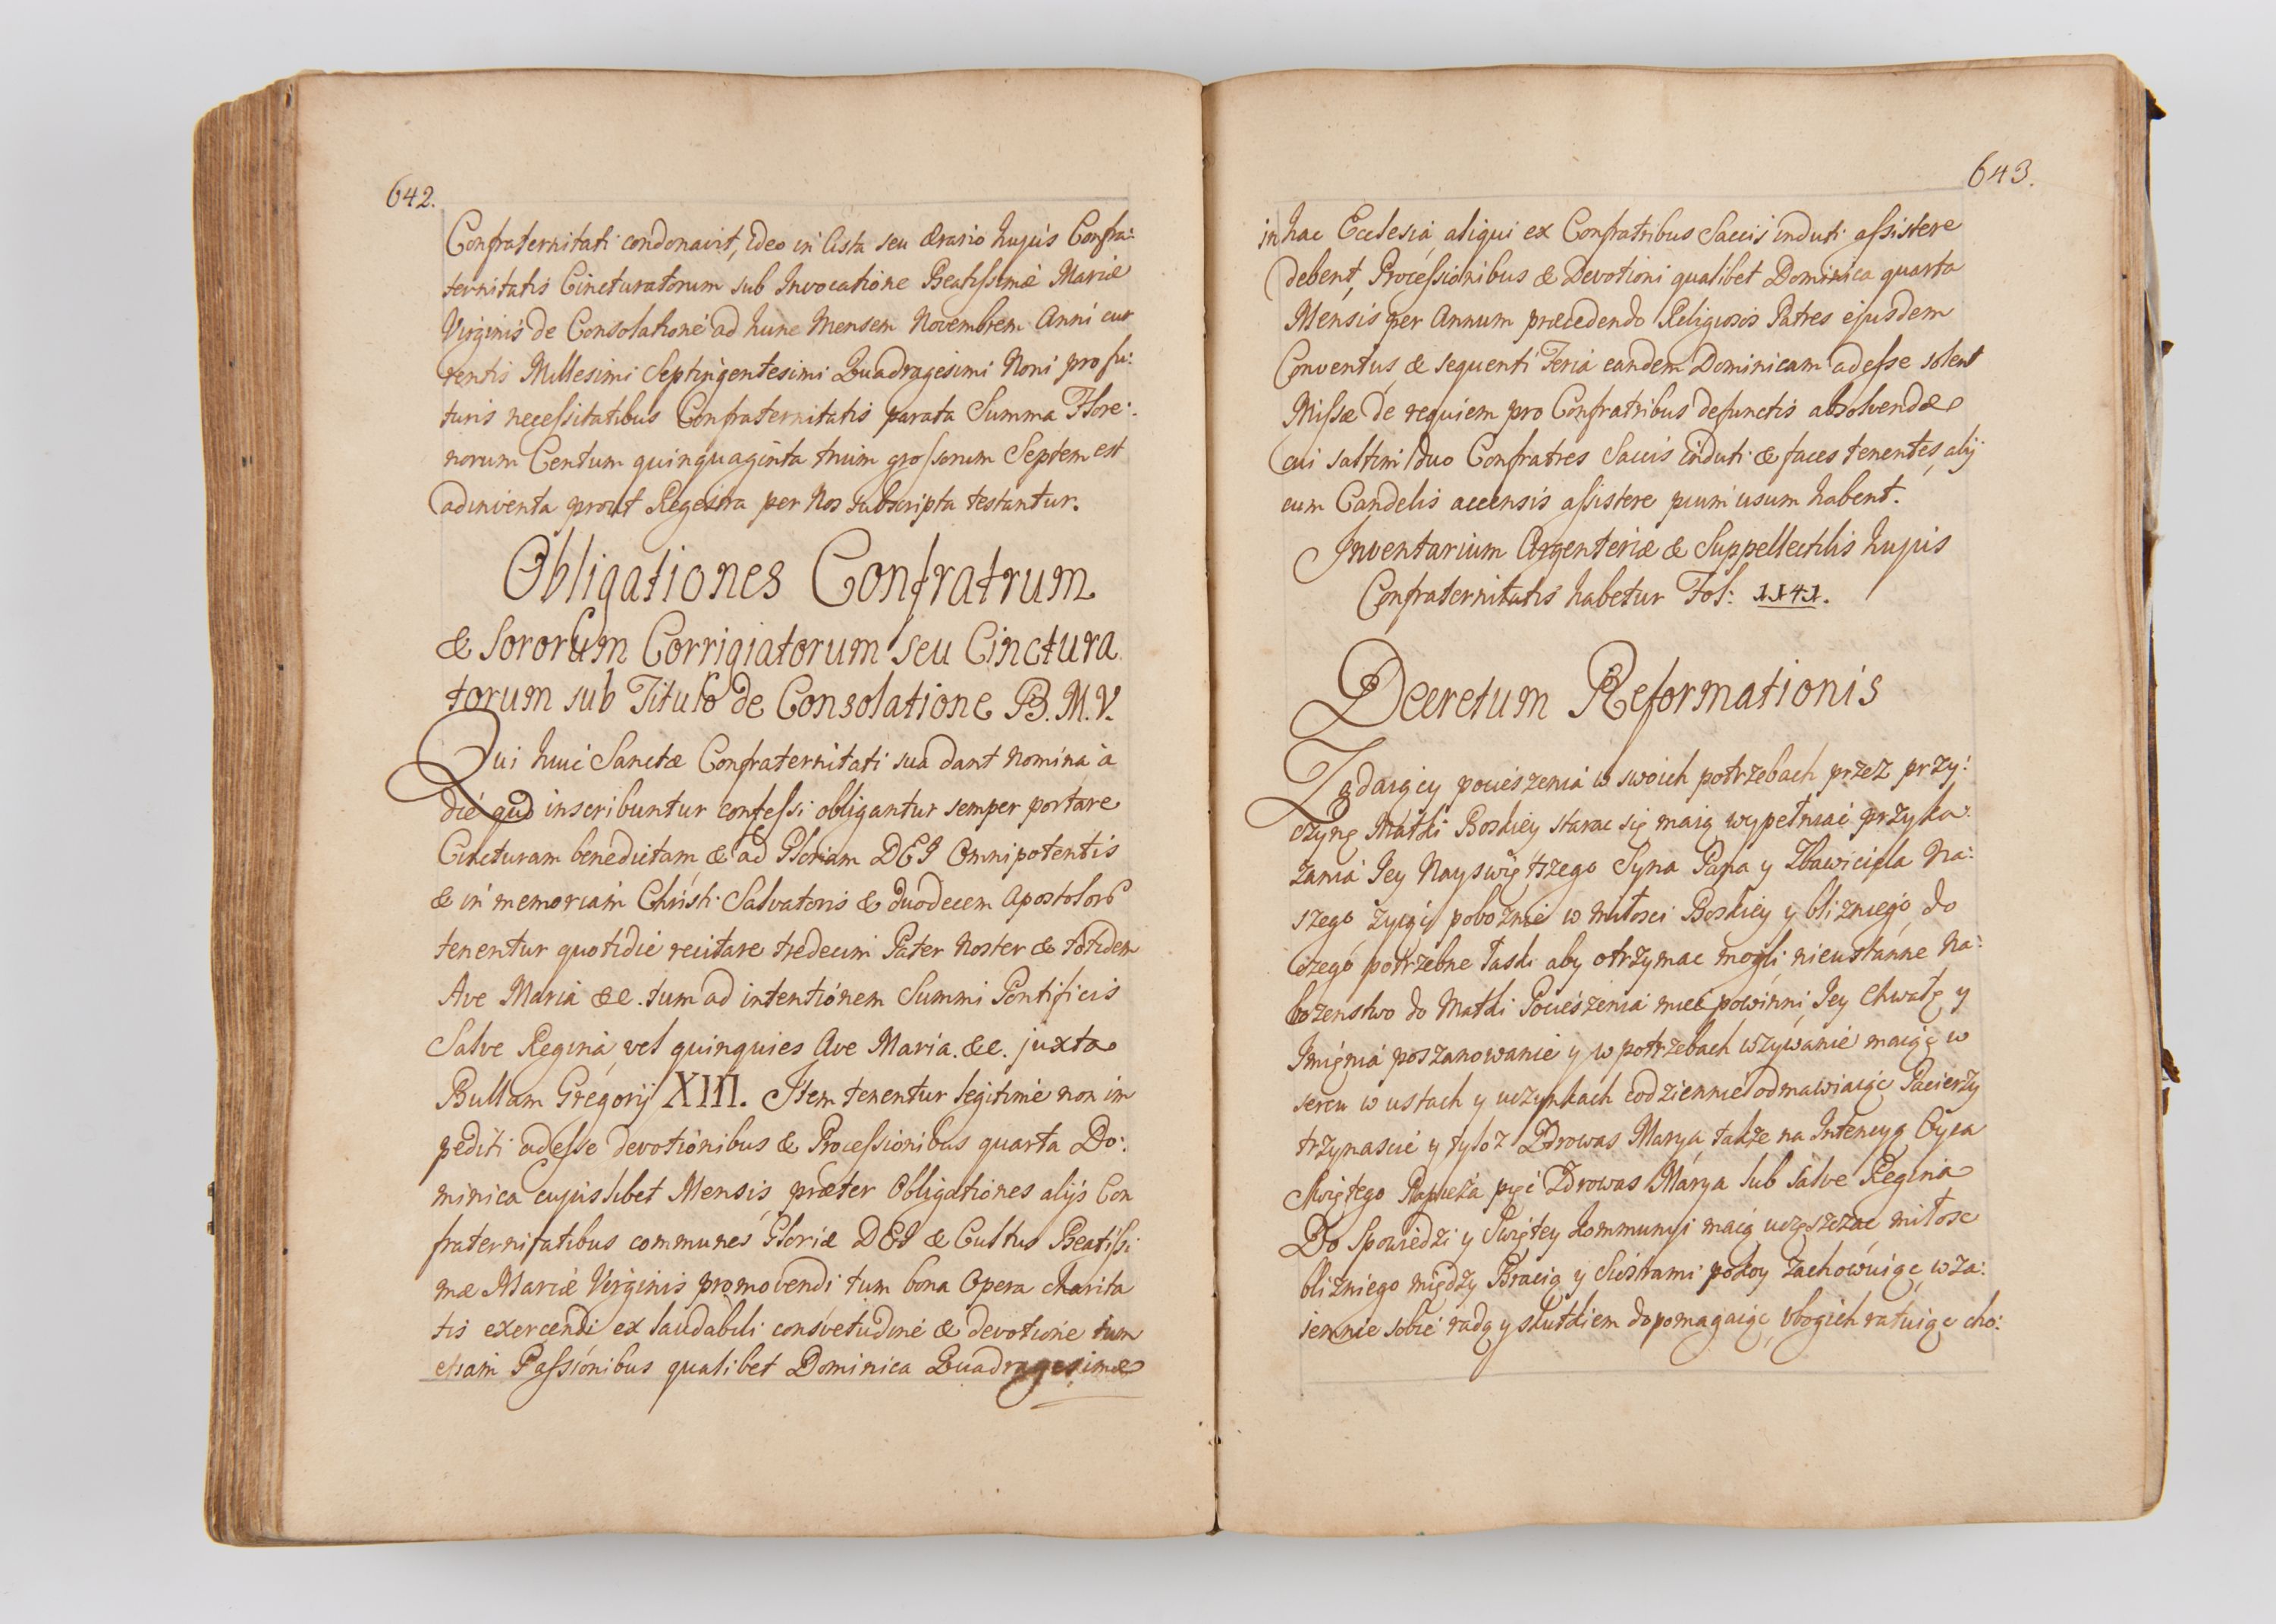 642.
Confraternitati condonavit, ideo in Cista seu Ærario hujus Confra:
ternitatis Cincturatorum sub Invocatione Beatissimæ Mariæ
Virginis de Consolatione ad hunc Mensem Novembrem Anni cur
rentis Millesimi Septingentesimi Quadragesimi Noni pro fu:
turis necessitatibus Confraternitatis parata Summa Flore:
norum Centum quinquaginta trium grossorum Septem est
adinventa prout Regestra per Nos subscripta testantur.
Obligationes Confratrum
& Sororum Corrigiatorum seu Cinctura
torum sub Titulo de Consolatione B. M. V.
Qui huic Sanctæ Confraternitati sua dant Nomina a
die qua inscribuntur confessi obligantur semper portare
Cincturam benedictam, & ad Gloriam DEI Omnipotentis
& in memoriam Christi Salvatoris & duodecem Apostolorũ
tenentur quotidie recitare tredecim Pater Noster & totidem
Ave Maria &c. tum ad intentionem Summi Pontificis
Salve Regina, vel quinquies Ave Maria. &c. juxta
Bullam Gregorij XIII. Item tenentur legitime non im
pediti adesse devotionibus & Processionibus quarta Do:
minica cujuslibet Mensis, præter Obligationes alijs Con
fraternitatibus communes Gloriæ DEI & Cultus Beatissi
mæ Mariæ Virginis promovendi tum bona Opera charita
tis exercendi ex laudabili consvetudine & devotione tum
etiam Passionibus qualibet Dominica Quadragesimæ
643.
in hac Ecclesia aliqui ex Confratribus Saccis induti assistere
debent, Processionibus & Devotioni qualibet Dominica quarta
Mensis per Annum præcedendo Religiosos Patres ejusdem
Conventus, & sequenti Feria eandem Dominicam adesse solent
Missæ de requiem pro Confratribus defunctis absolvendæ
cui saltim duo Confratres Saccis induti & faces tenentes, alij
cum Candelis accensis assistere pium usum habent.
Inventarium Argenteriæ & Suppellectilis hujus
Confraternitatis habetur Fol: 1141.
Decretum Reformationis
Ządaiący pocieszenia w swoich potrzebach przez przy:
czynę Matki Boskiey starac się maią wypełniać przyka:
zania Jey Nayswiętszego Syna Pana y Zbawiciela Na:
szego żyiąc pobożnie w miłosci Boskiey y bliżniego, do
czego potrzebne łaski aby otrzymac mogli, nieustanne Na:
bożenstwo do Matki Pocieszenia mieć powinni, Jey Chwałę y
Imięnia poszanowanie y w potrzebach wzywanie maiąc w
sercu w ustach y uczynkach codziennie odmawiaiąc Pacierzy
trzynascie y tyloż Zdrowas Marya, także na Intencyą Oyca
Swiętego Papieża pięć Zdrowas Marya lub Salve Regina
Do Spowiedzi y Swiętey Kommunyi maią uczęszczac, miłosc
bliżniego między Bracią y Siostrami pokoy zachowuiąc, wza:
iemnie sobie radą y skutkiem dopomagaiąc, vbogich ratuiąc cho: